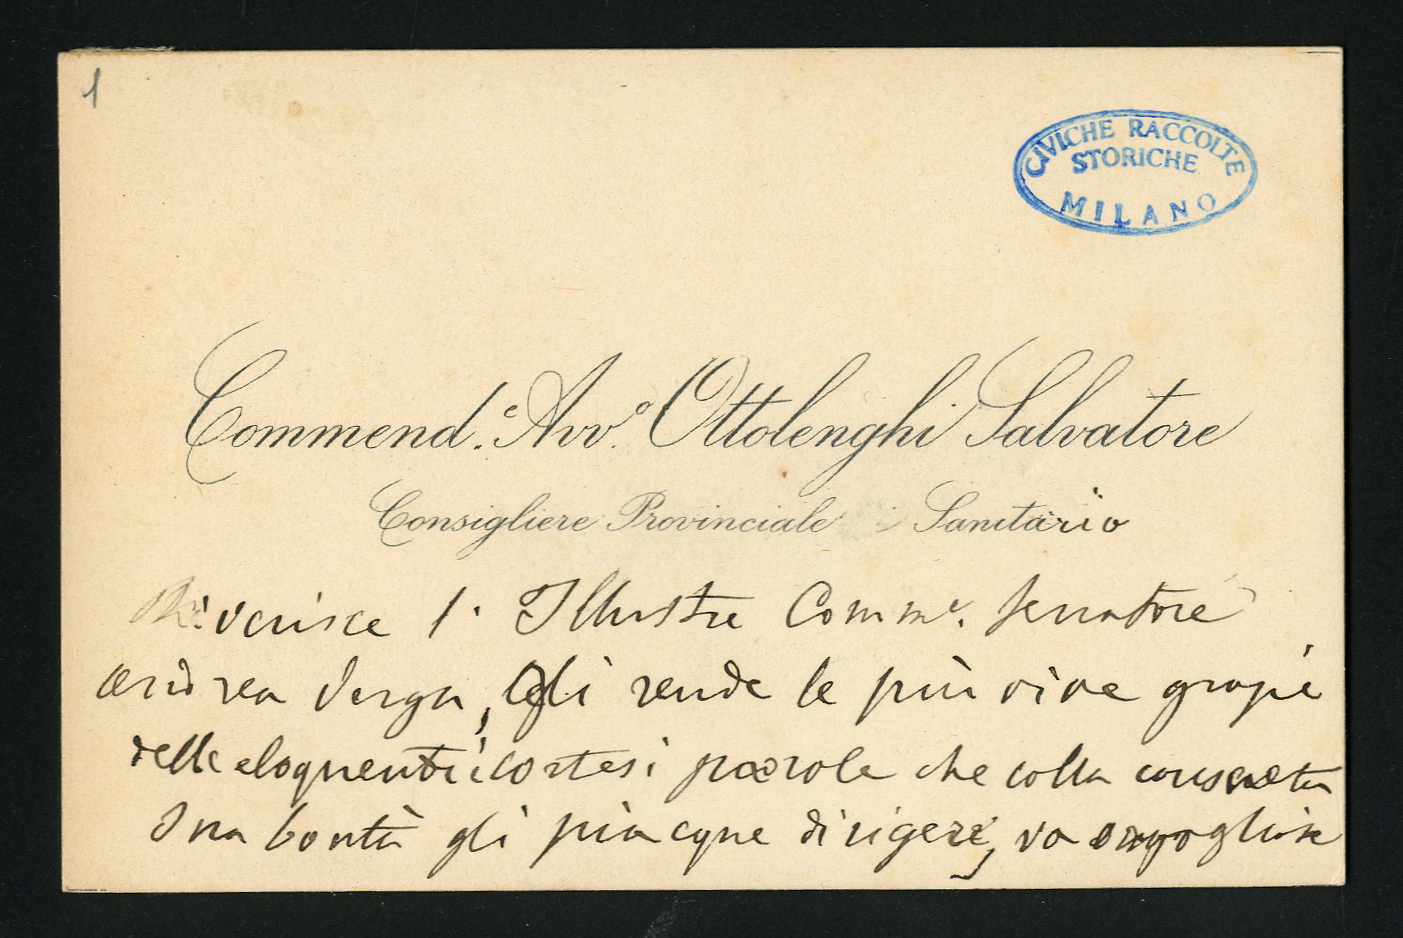 1
CIVICHE RACCOLTE
STORICHE
MILANO
Commend.e Avv.o Ottolenghi Salvatore
Consigliere Provinciale Sanitario
Riverisce l' Illustre Comme. Senatore
Andrea Verga, Gli rende le più vive grazie
delle eloquenti e cortesi parole che colla consueta
Sua bontà gli piacque dirigere, va orgoglioso